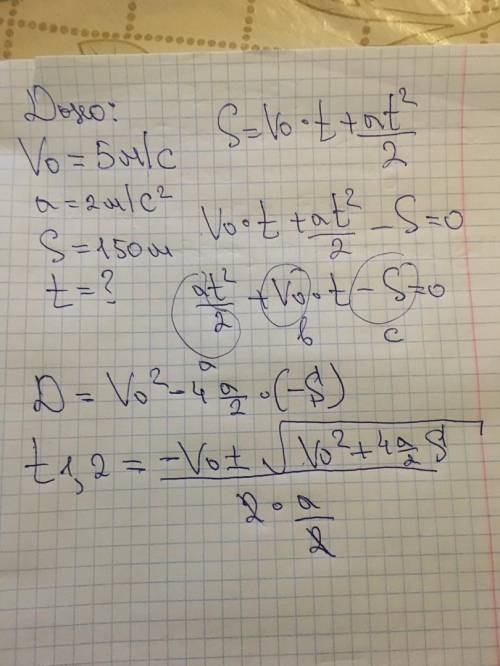 Дано:
V₀ = 5 м/с
a = 2 м/с²
S = 150 м
t = ?
S = V₀ · t + at²/2
V₀ · t + at²/2 − S = 0
at²/2 + V₀ · t − S = 0
a b c
D = V₀² − 4 a/2 · (−S)
t 1,2 = (−V₀ ± √(V₀² + 4 a/2 S)) / (2 · a/2)